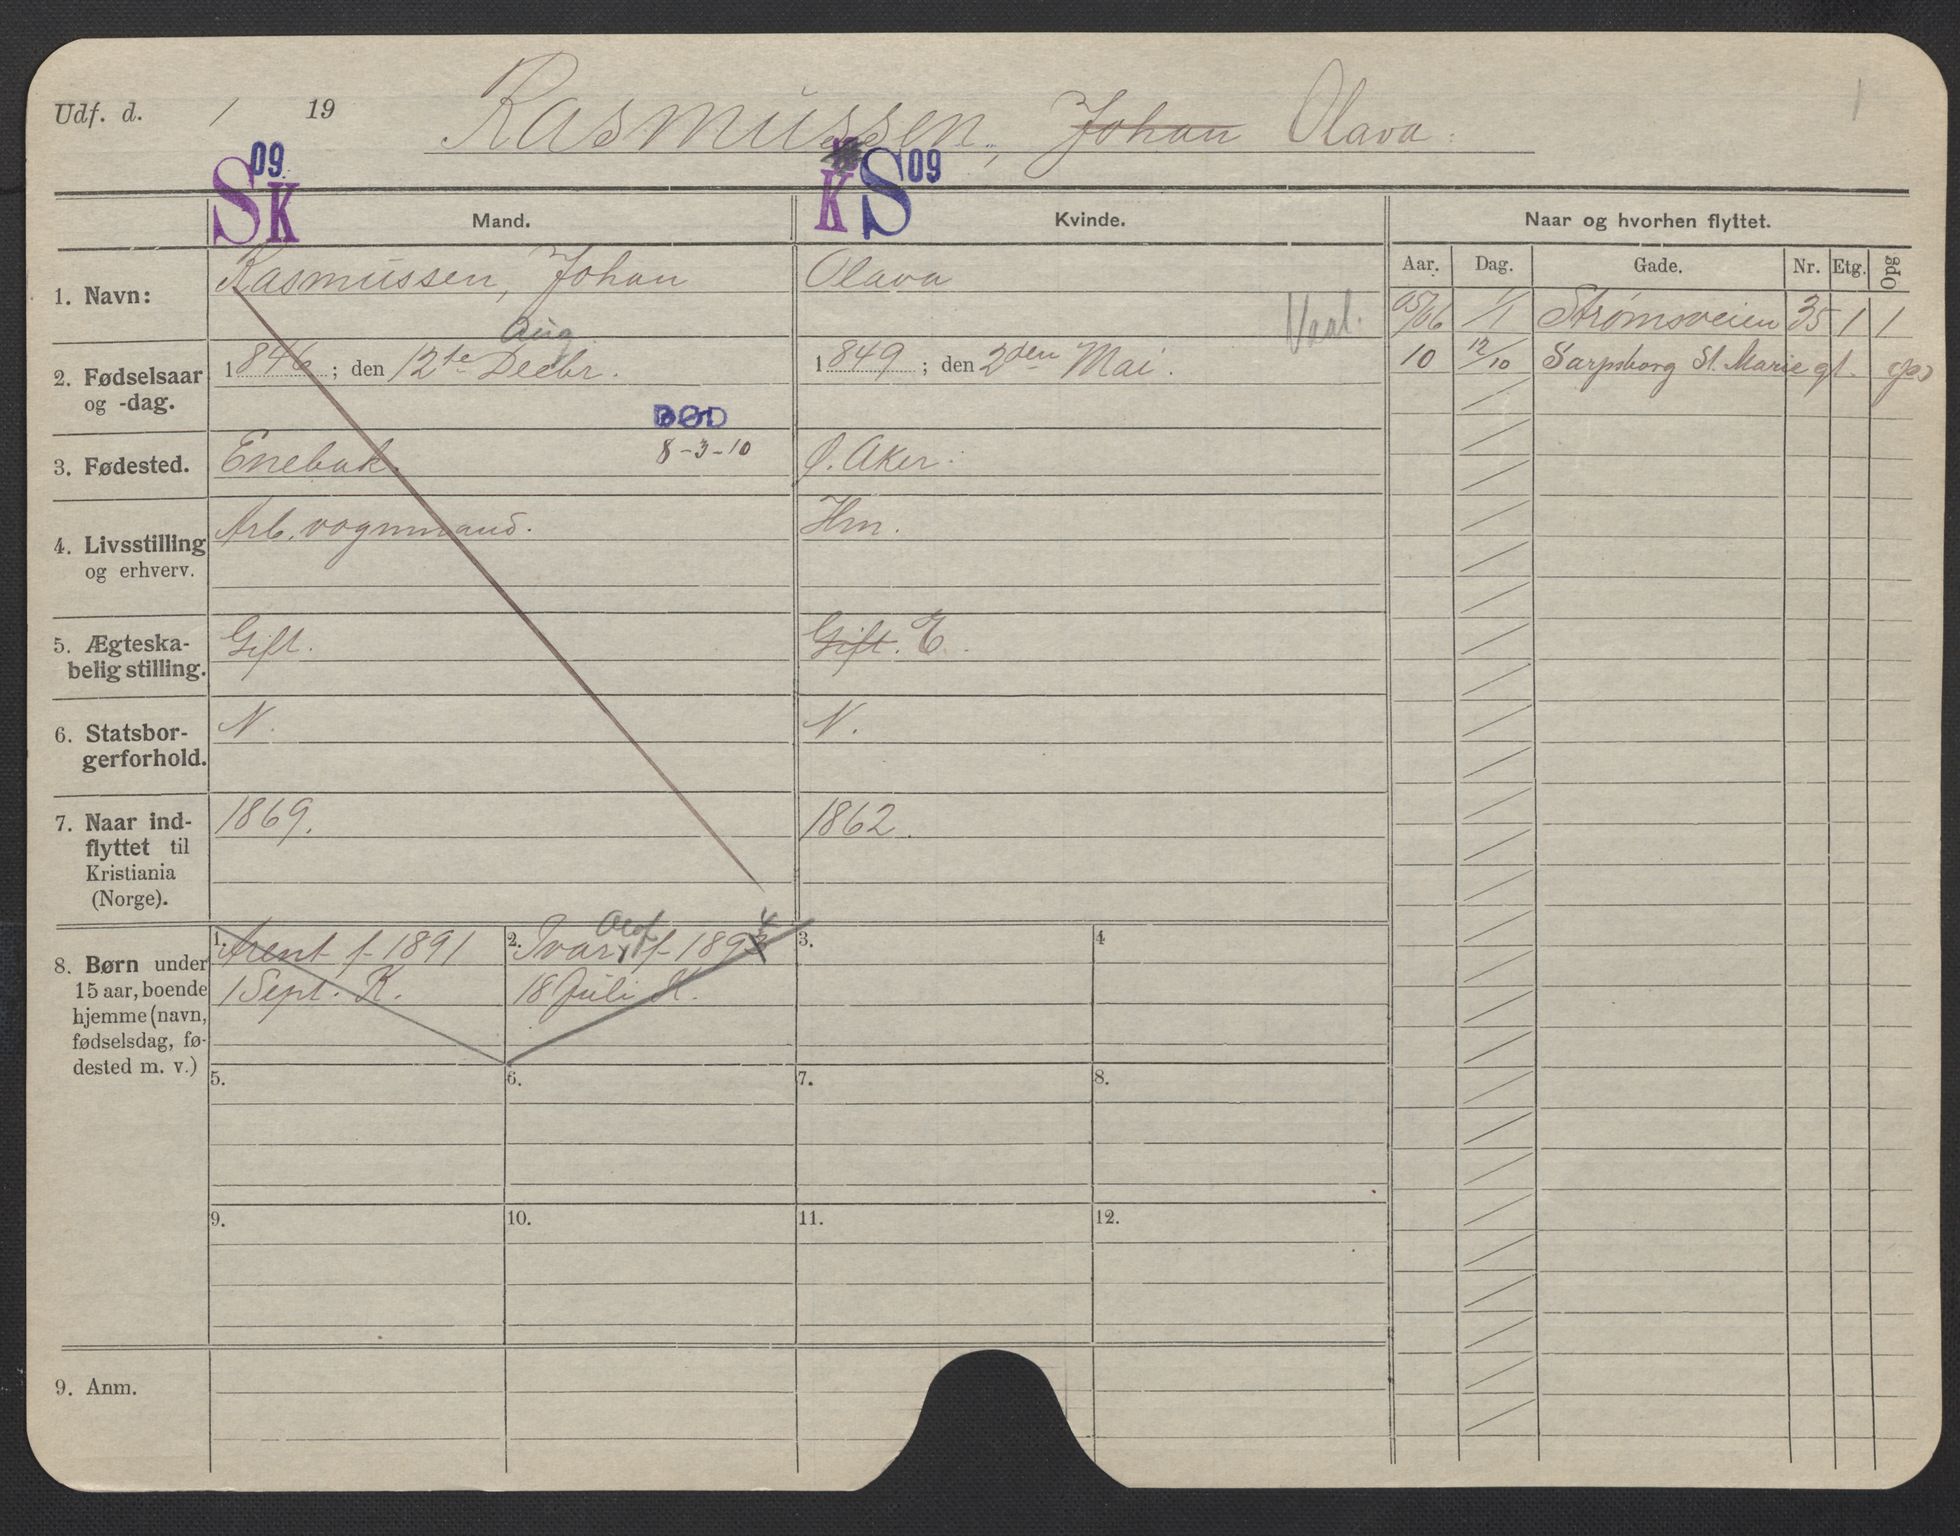 Udf. d. / 19 Rasmussen, Johan Olava.
1
S 09 K
K S 09
Mand.
Kvinde.
Naar og hvorhen flyttet.
Aar. Dag. Gade. Nr. Etg. Opg
1. Navn: Rasmussen, Johan
Olava
05/06 1/1 Strømsveien 35 1 1
10 12/10 Sarpsborg St. Marie gt.
Aug
2. Fødselsaar og -dag.
1846; den 12te Decbr.
1849; den 2den Mai.
DØD
8-3-10
3. Fødested. Enebak.
Ø. Aker.
4. Livsstilling og erhverv.
Arb. vognmand.
Hm.
5. Ægteska-
belig stilling.
Gift.
Gift. E.
6. Statsbor-
gerforhold.
N.
N.
7. Naar ind-
flyttet til
Kristiania
(Norge).
1869.
1862.
8. Børn under
15 aar, boende
hjemme (navn,
fødselsdag, fø-
dested m. v.)
1. Arent f. 1891
1 Sept. K.
2. Ivar Olof f. 1893 4
18 Juli K.
3.
4
5.
6.
7.
8.
9.
10.
11.
12.
9. Anm.